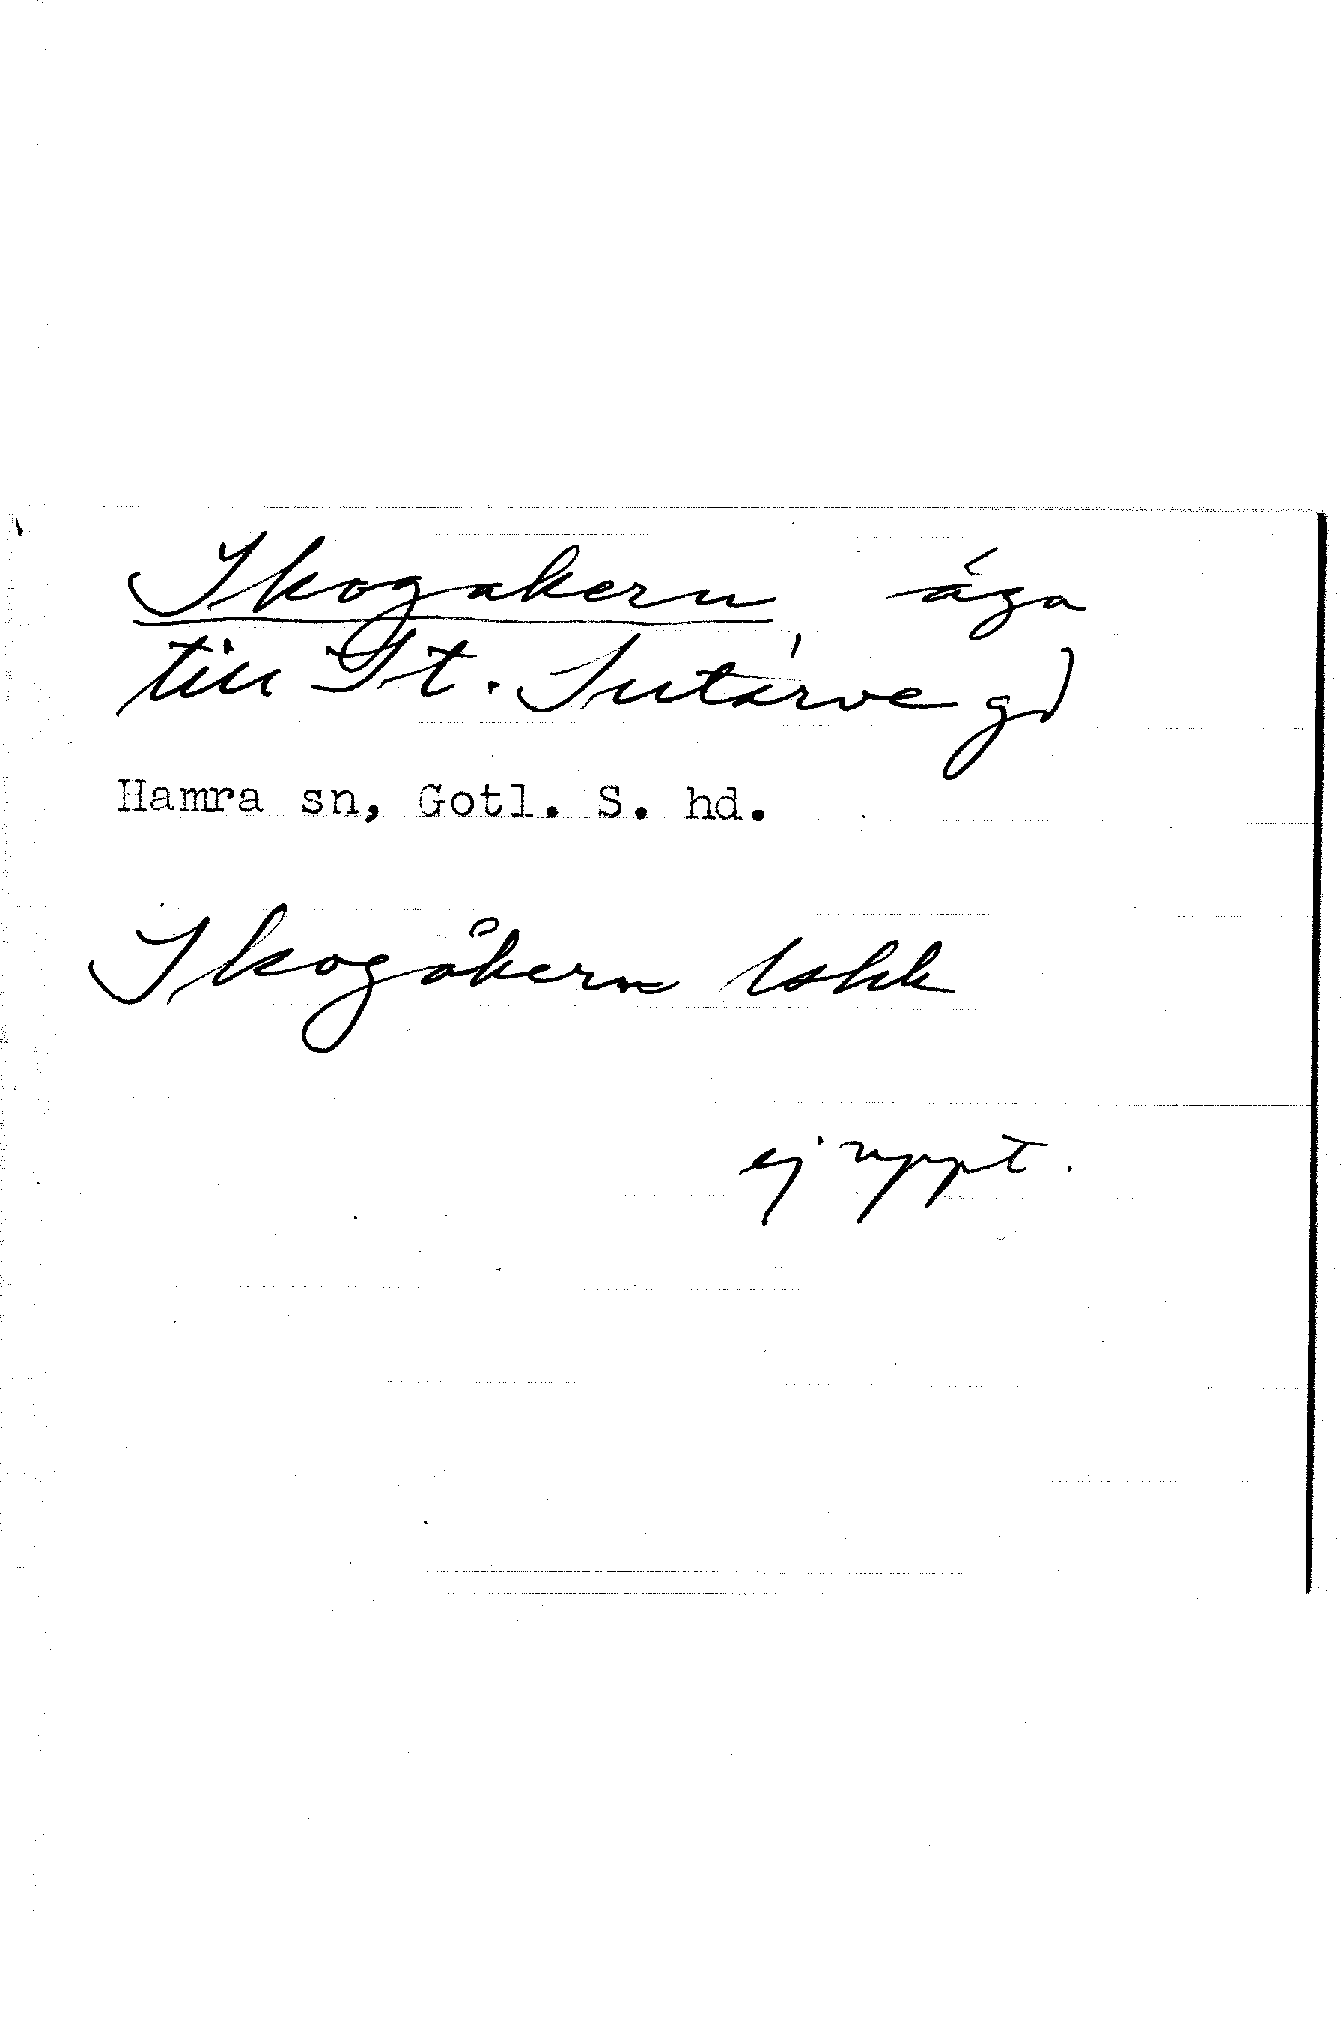 Skogakern äga
till St. Sutärve gd
Hamra sn, Gotl. S. hd.
Skogåkern
ej uppt.